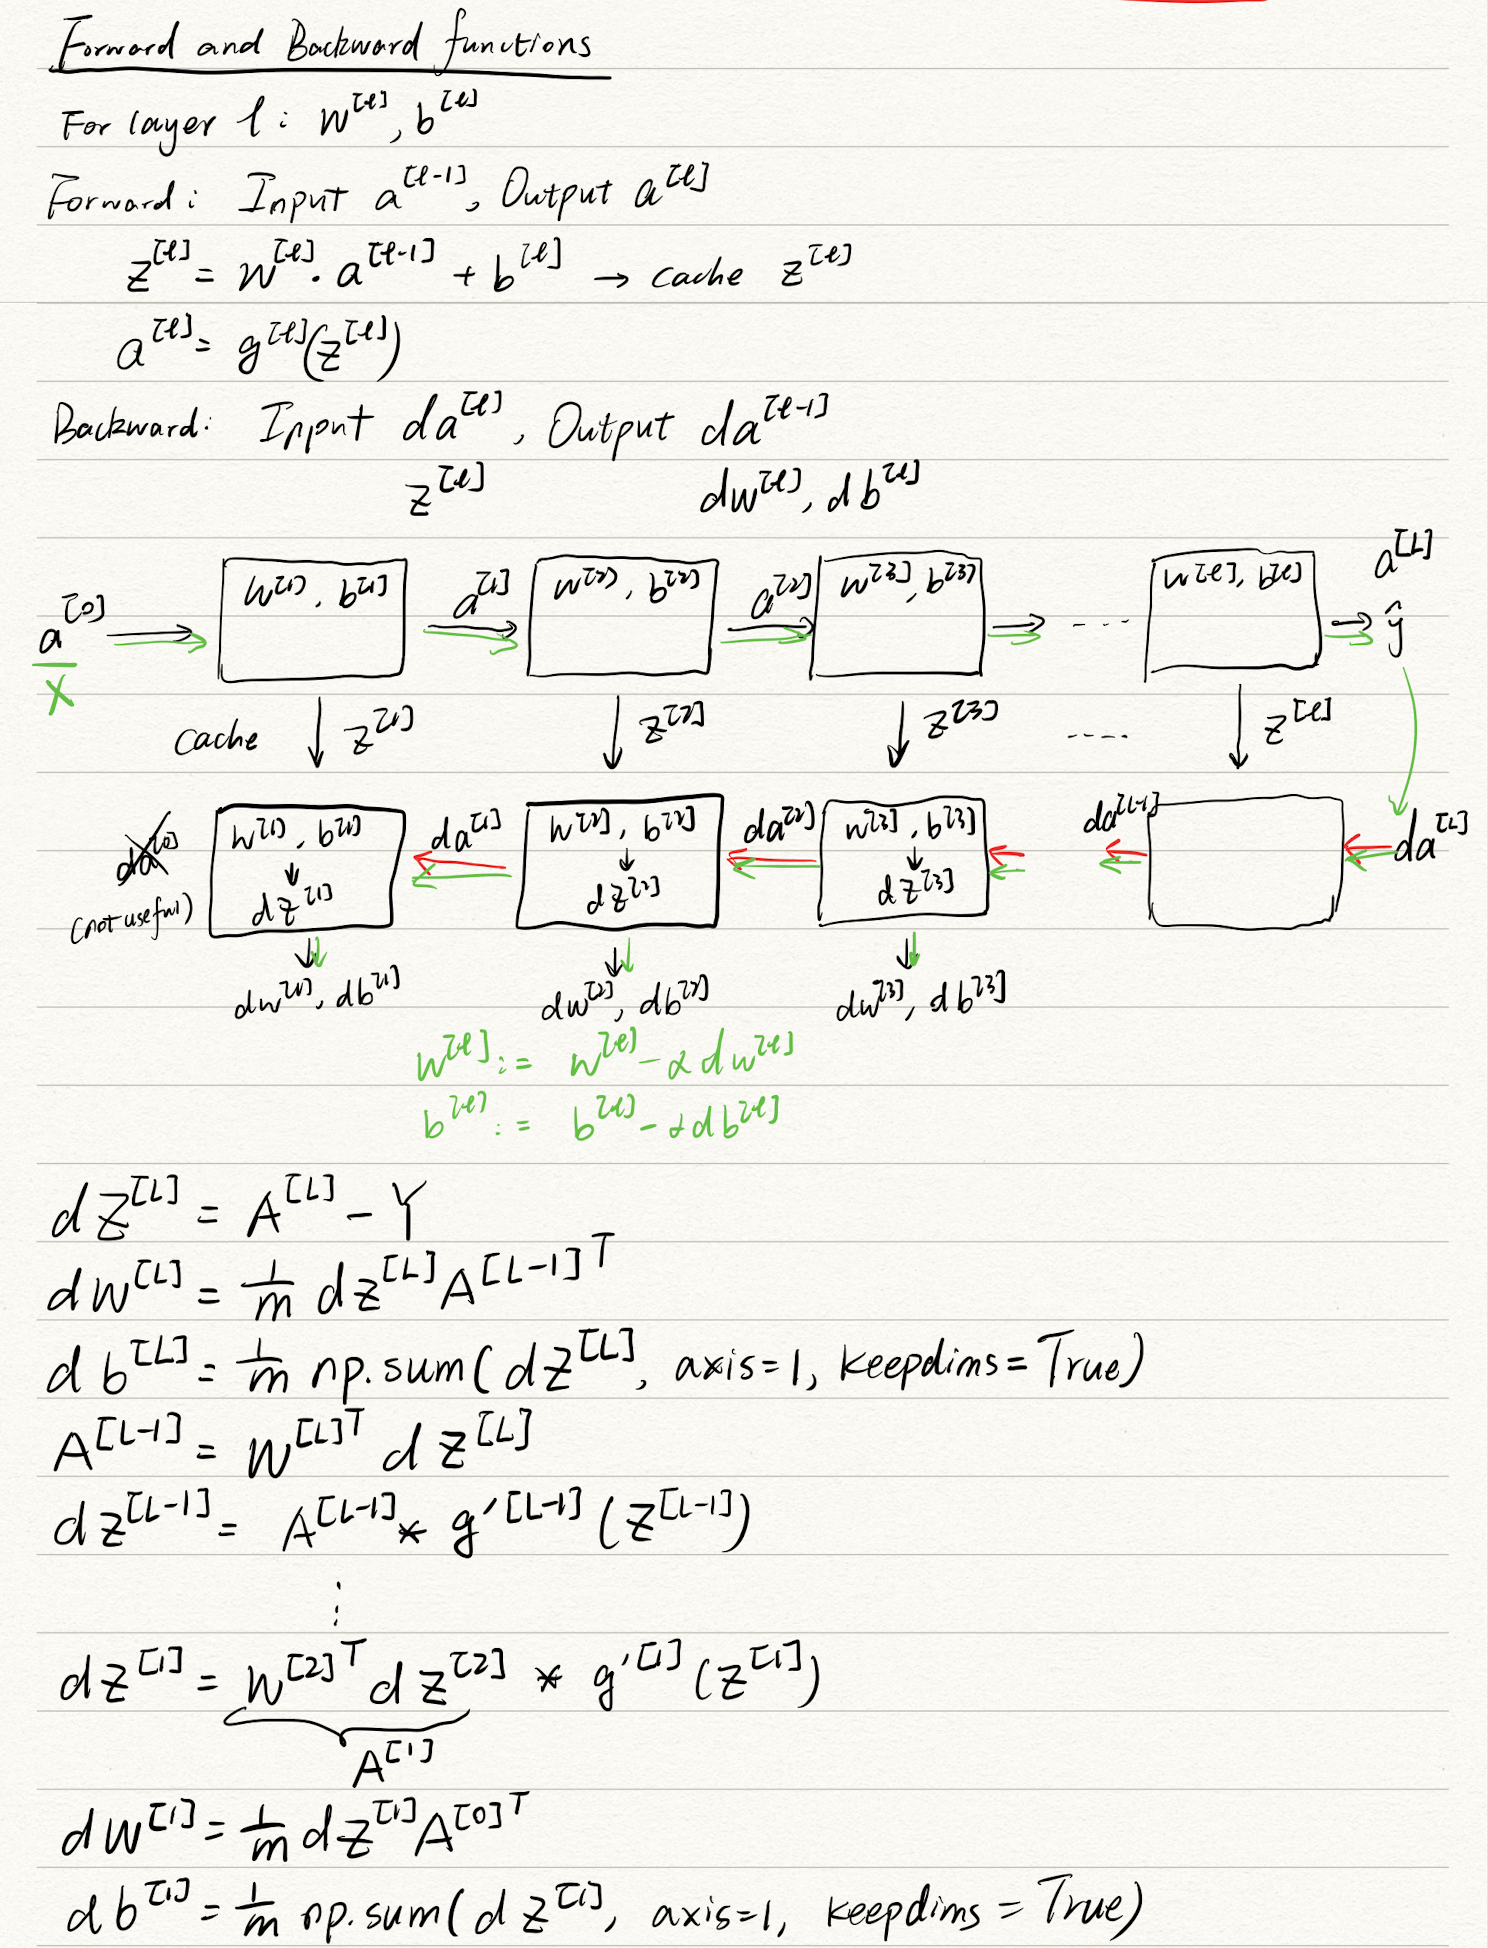 Forward and Backward functions
For layer l: W^[l], b^[l]
Forward: Input a^[l-1], Output a^[l]
z^[l] = W^[l] · a^[l-1] + b^[l] → cache z^[l]
a^[l] = g^[l](z^[l])
Backward: Input da^[l], Output da^[l-1]
z^[l] dW^[l], db^[l]
a^[0] → W^[1], b^[1] a^[1] → W^[2], b^[2] a^[2] → W^[3], b^[3] → ---- W^[l], b^[l] → a^[L]
X ŷ
cache ↓ z^[1] ↓ z^[2] ↓ z^[3] ..... ↓ z^[l]
da^[0] W^[1], b^[1] ← da^[1] W^[2], b^[2] ← da^[2] W^[3], b^[3] ← da^[L-1] ← da^[L]
(not useful) ↓ dz^[1] ↓ dz^[2] ↓ dz^[3]
↓ dW^[1], db^[1] ↓ dW^[2], db^[2] ↓ dW^[3], db^[3]
W^[l] := W^[l] - α dW^[l]
b^[l] := b^[l] - α db^[l]
dZ^[L] = A^[L] - Y
dW^[L] = 1/m dZ^[L] A^[L-1]T
db^[L] = 1/m np.sum(dZ^[L], axis=1, keepdims=True)
A^[L-1] = W^[L]T dZ^[L]
dZ^[L-1] = A^[L-1] * g'^[L-1](Z^[L-1])
⋮
dZ^[1] = W^[2]T dZ^[2] * g'^[1](Z^[1])
A^[1]
dW^[1] = 1/m dZ^[1] A^[0]T
db^[1] = 1/m np.sum(dZ^[1], axis=1, keepdims=True)